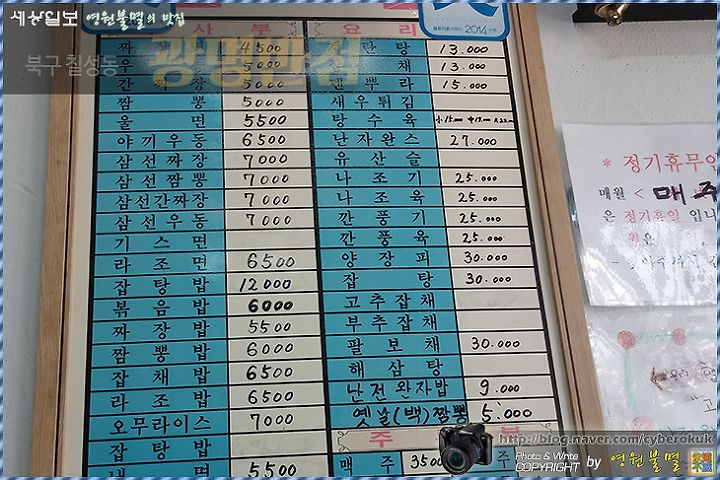 세상일보 영원불멸의 맛집
북구 칠성동 광명반점
사 부
짜 장 면 4500
우 5000
간 짜 장 5000
짬 뽕 5000
울 면 5500
야 끼 우 동 6500
삼 선 짜 장 7000
삼 선 짬 뽕 7000
삼선간짜장 7000
삼 선 우 동 7000
기 스 면
라 조 면 6500
잡 탕 밥 12000
볶 음 밥 6000
짜 장 밥 5500
짬 뽕 밥 6000
잡 채 밥 6500
라 조 밥 6500
오무라이스 7000
잡 탕 밥
냉 면 5500
요 리
2014
계 란 탕 13.000
채 13.000
덴 뿌 라 15.000
새 우 튀 김
탕 수 육
난 자 완 스 27.000
유 산 슬
나 조 기 25.000
나 조 육 25.000
깐 풍 기 25.000
깐 풍 육 25.000
양 장 피 30.000
잡 탕 30.000
고 추 잡 채
부 추 잡 채
팔 보 채 30.000
해 삼 탕
난전완자밥 9.000
옛날(백)짬뽕 5.000
주 부
맥 주 3500
주
* 정기휴무안
매월 < 매 주
은 정기휴일 입니
http://blog.naver.com/cyberokuk
Photo & Write
COPYRIGHT by 영원불멸